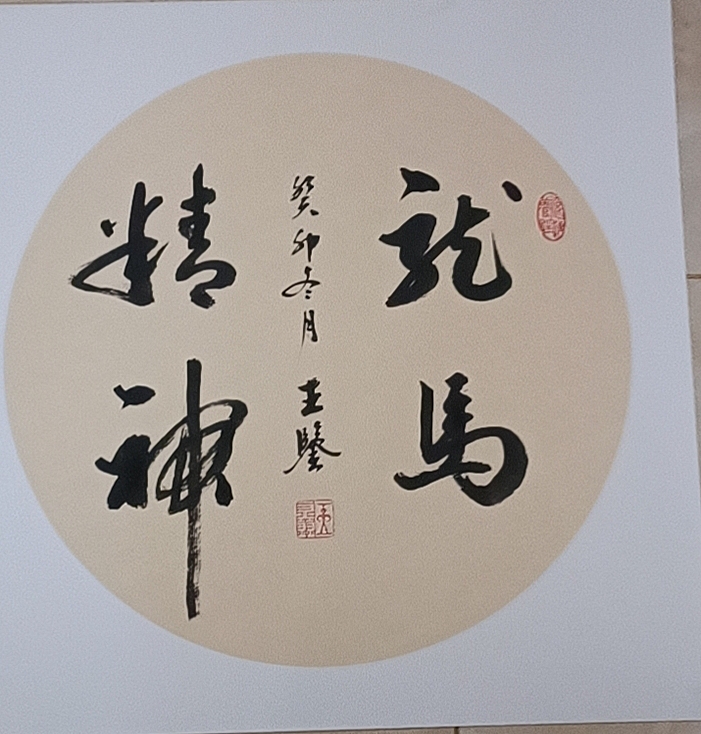 龍馬
精神
癸卯冬月 王鑒